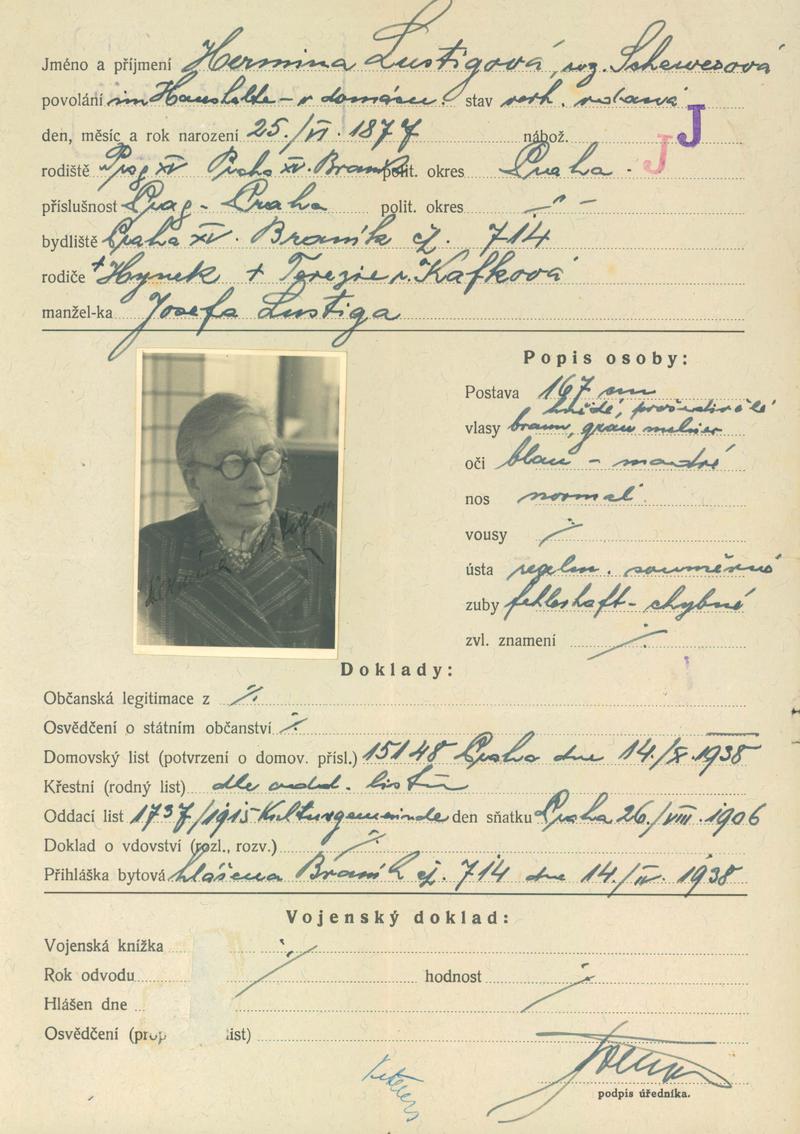 Jméno a příjmení Hermina Lustigová, roz. Scheuerová
povolání im Haushalte - v domácn. stav verh. vdaná
den, měsíc a rok narození 25./VI. 1877 nábož.
J J
rodiště Prag XV Praha XV. Braník polit. okres Praha
příslušnost Prag - Praha polit. okres -"-
bydliště Praha XV. Braník čj. 714
rodiče + Hynek + Terezie r. Kafková
manžel-ka Josefa Lustiga
Popis osoby:
Postava 167 cm
hnědé, prošedivělé
vlasy braun, grau
oči blau - modré
nos normal
vousy
ústa regelm. souměrné
zuby fehlerhaft - chybné
zvl. znamení
Doklady:
Občanská legitimace z
Osvědčení o státním občanství
Domovský list (potvrzení o domov. přísl.) 15148 Praha dne 14./X. 1938
Křestní (rodný list) dle oddac. listu
Oddací list 1737/1915 Kultusgemeinde den sňatku Praha 26./VIII. 1906
Doklad o vdovství (rozl., rozv.)
Přihláška bytová hlášena Braník čj. 714 dne 14./IV. 1938
Vojenský doklad:
Vojenská knížka
Rok odvodu hodnost
Hlášen dne
Osvědčení (prop list)
podpis úředníka.